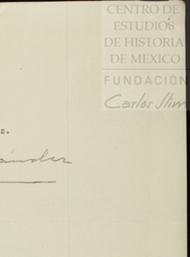 CENTRO DE
ESTUDIOS
DE HISTORIA
DE MEXICO
FUNDACIÓN
Carlos Slim
D.